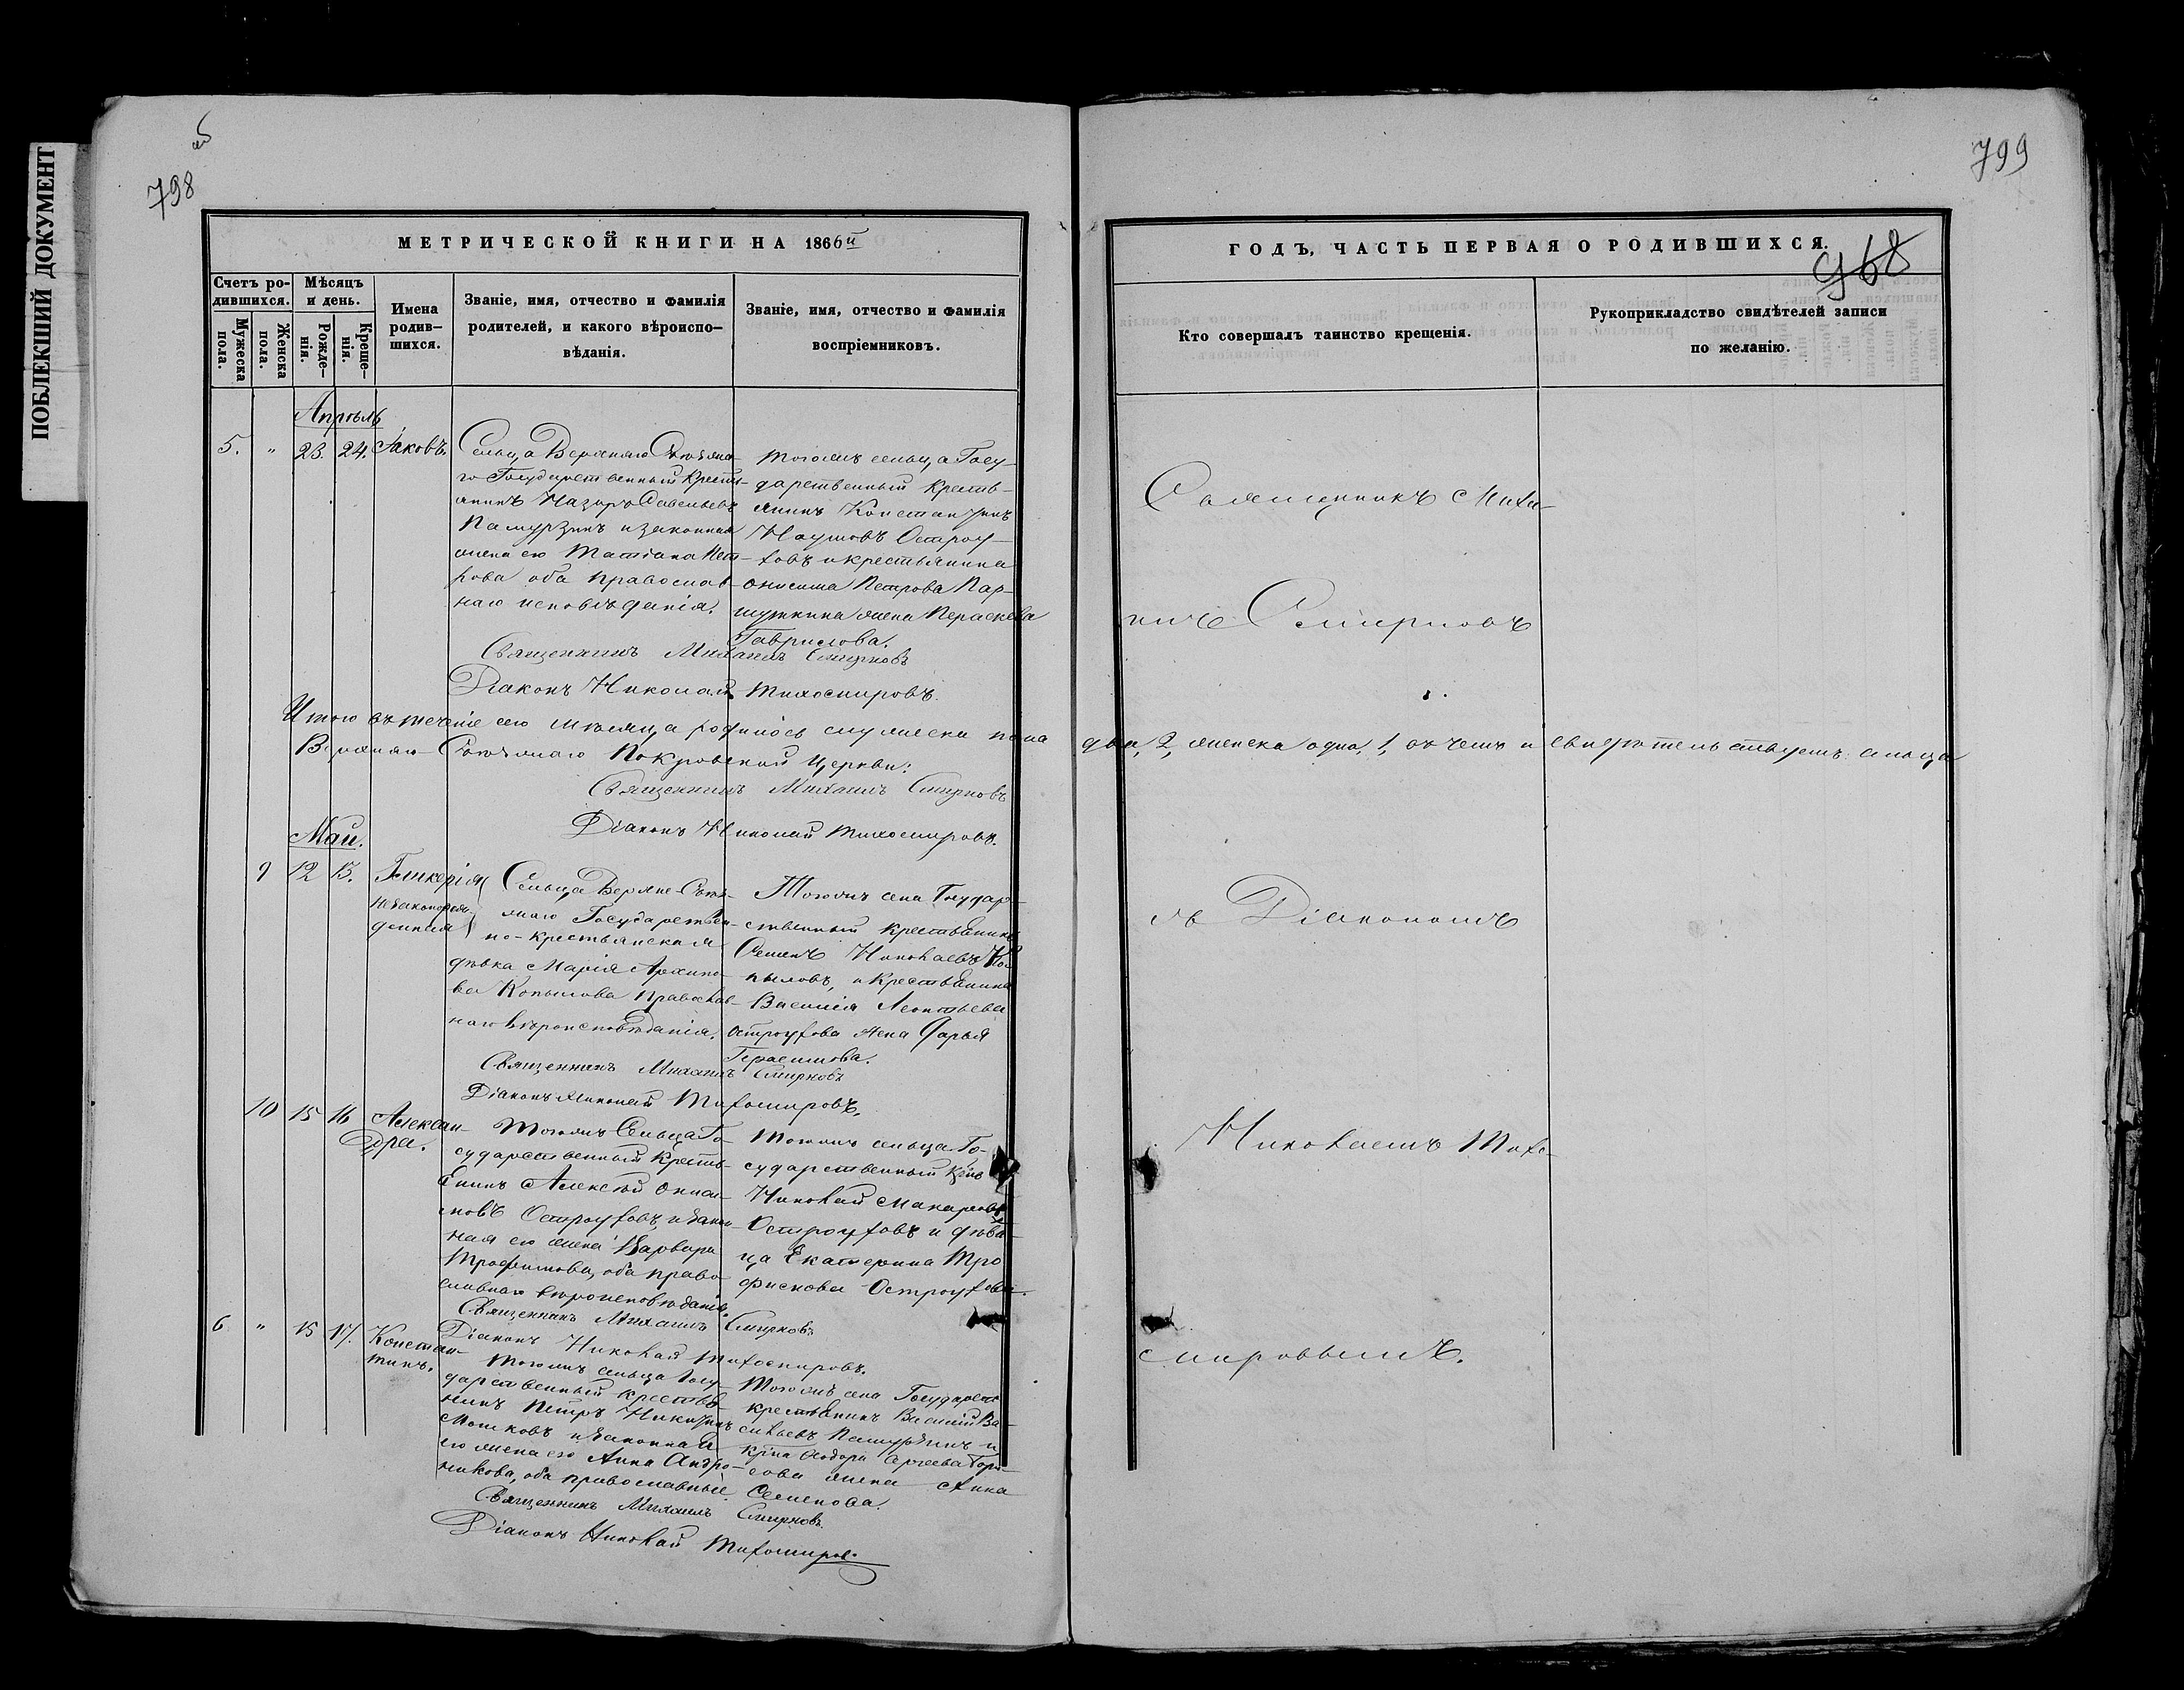 ПОБЛЕКШИЙ ДОКУМЕНТ
об
798
МЕТРИЧЕСКОЙ КНИГИ НА 1866й
Счетъ ро-
дившихся.
Мужеска
пола.
Женска
пола.
Мѣсяцъ
и день.
Рожде-
нія.
Креще-
нія.
Имена
родив-
шихся.
Званіе, имя, отчество и фамилія
родителей, и какого вѣроиспо-
вѣданія.
Званіе, имя, отчество и фамилія
воспріемниковъ.
Апрѣль
5. " 23. 24. Іаковъ.
Сельца Верхняго
го Государственный крестья-
нинъ Назаръ Савельевъ
Памурзинъ и законная
жена его Татіана Пет-
рова оба православ-
наго исповѣданія.
Тогожъ сельца Госу-
дарственный кресть-
янинъ Константинъ
Наумовъ Остроу-
ховъ и крестьянина
Онисима Петрова Пар-
шуткина жена Параскева
Гаврилова.
Священникъ Михаилъ Смирновъ
Діаконъ Николай Тихомировъ.
Итого въ теченіе сего мѣсяца родилось мужеска пола
Верхняго Покровской Церкви:
Священникъ Михаилъ Смирновъ
Діаконъ Николай Тихомировъ.
Май.
9 12 13. Гликерія
незаконорож-
денная
Сельца Верхне-
Государствен-
но-крестьянская
дѣвка Марія Архипо-
ва Копылова православ-
наго вѣроисповѣданія.
Тогожъ села Государ-
ственный крестьянинъ
Семенъ Николаевъ Ко-
пыловъ, и крестьянина
Василія Леонтьева
Остроухова жена Дарья
Герасимова.
Священникъ Михаилъ Смирновъ
Діаконъ Николай Тихомировъ.
10 15 16 Алексан-
дра.
Тогожъ Сельца Го-
сударственный кресть-
янинъ Алексѣй Ониси-
мовъ Остроуховъ, и закон-
ная его жена Варвара
Трофимова, оба право-
славнаго вѣроисповѣданія.
Тогожъ сельца Го-
сударственный
Николай Макаровъ
Остроуховъ и дѣви-
ца Екатерина Тро-
фимова Остроухова.
Священникъ Михаилъ Смирновъ
Діаконъ Николай Тихомировъ.
6 " 15 17. Констан-
тинъ.
Тогожъ сельца Госу-
дарственный крестья-
нинъ Петръ Никитинъ
и законная
его жена его Анна Андро-
никова, оба православные.
Тогожъ села Государств
крестьянинъ Василій Ва-
сильевъ Памурзинъ и
Сергеева
жена Анна
Семенова.
Священникъ Михаилъ Смирновъ.
Діаконъ Николай Тихомиров.
799
968
ГОДЪ, ЧАСТЬ ПЕРВАЯ О РОДИВШИХСЯ.
Кто совершалъ таинство крещенія.
Рукоприкладство свидѣтелей записи
по желанію.
Священникъ Миха-
Смирновъ
два, 2, женска одна, 1, въ чемъ и свидѣтельствуемъ сельца
съ Діакономъ
Николаемъ Тихо-
мировымъ.